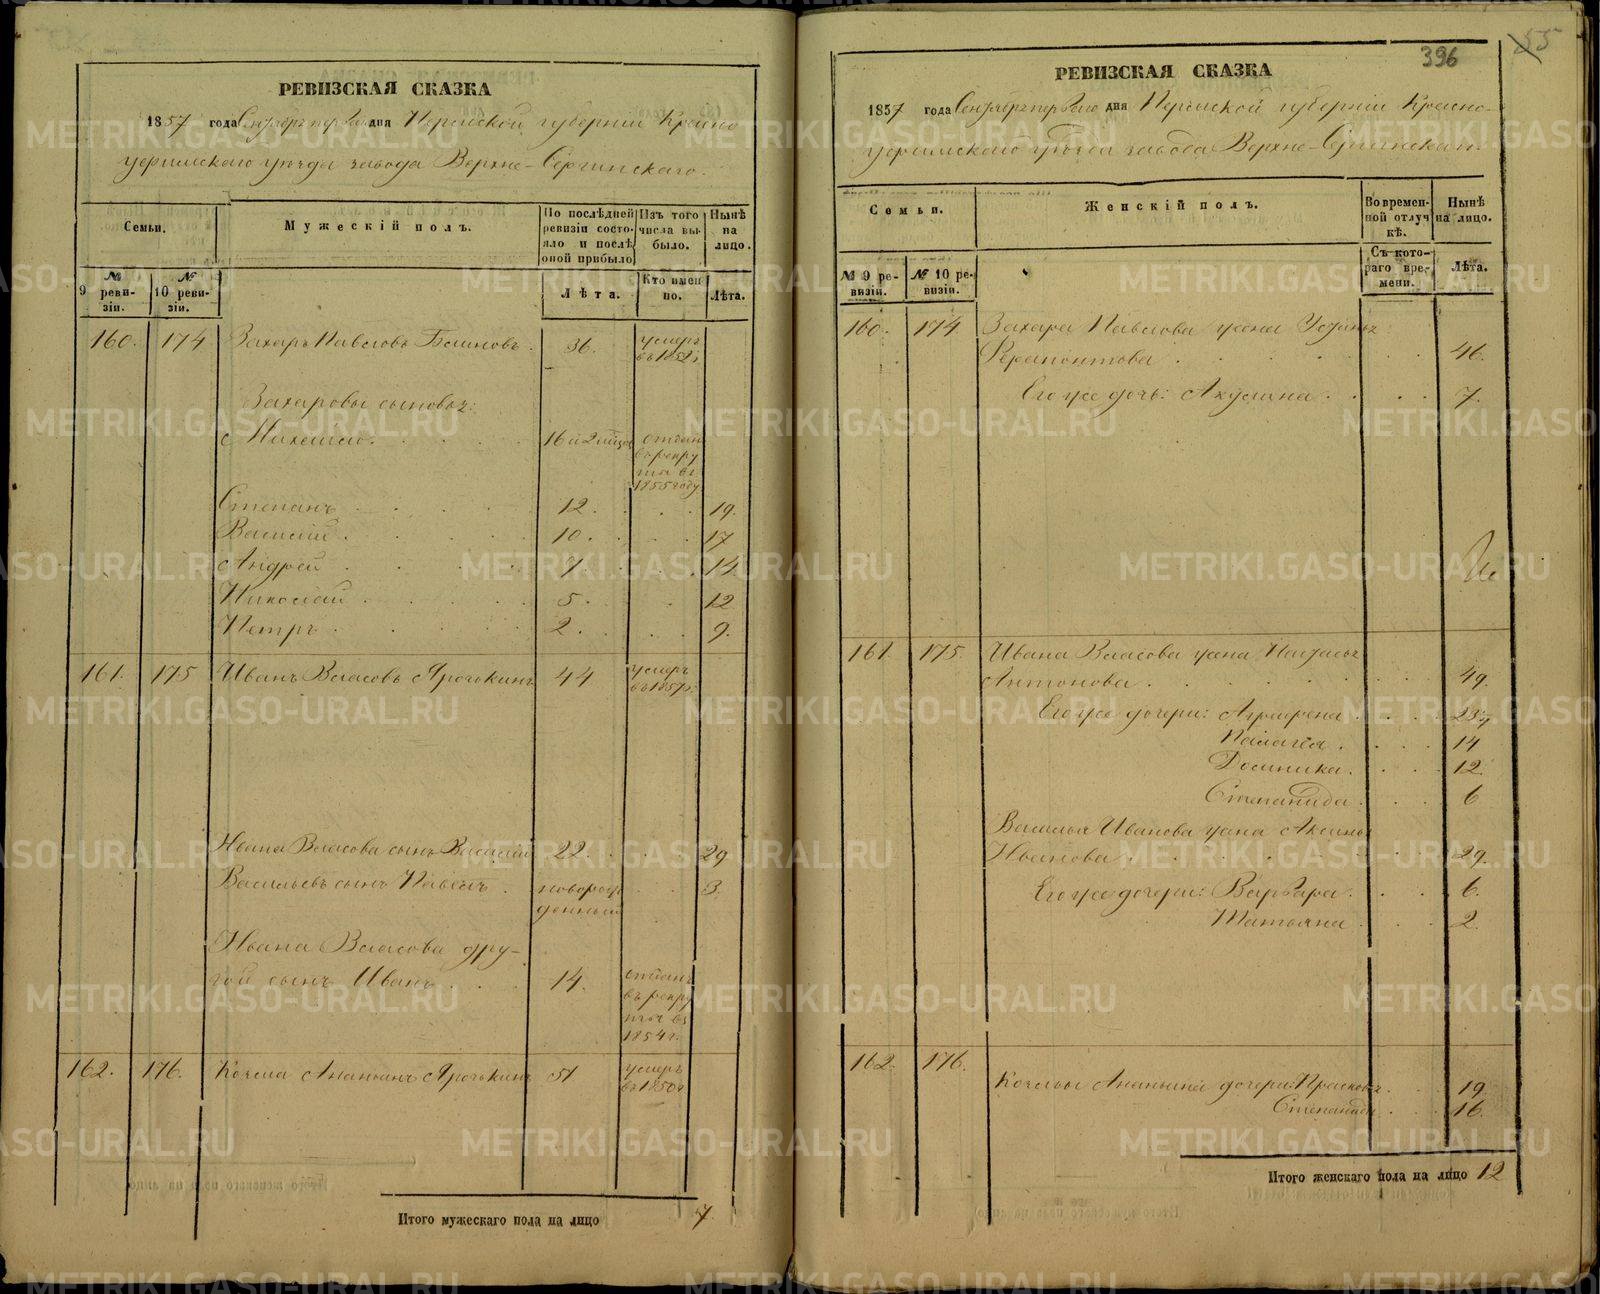 РЕВИЗСКАЯ СКАЗКА
1857 года Сентября первого дня Пермской губерніи Красно-
уфимскаго уѣзда завода Верхне-Сергинскаго.
Семьи.
Мужескій полъ.
По послѣдней ревизіи состояло и послѣ оной прибыло
Изъ того числа выбыло.
Нынѣ на лицо.
№ 9 ревизіи.
№ 10 ревизіи.
Лѣта.
Кто именно.
Лѣта.
160. 174 Захаръ Павловъ 36. умеръ
въ
Захаровы сыновья:
16 отдан
въ рекру
ты въ
1855 году.
Степанъ 12. 19.
Василій 10. 17
Андрей 7. 14
Николай 5. 12
Петръ 2. 9.
161. 175 Иванъ Власовъ 44 умеръ
въ 1857г.
Ивана Власова сынъ Василій 22. 29
Васильевъ сынъ Павелъ новорож 3.
денный
Ивана Власова дру-
гой сынъ Иванъ 14. отданъ
въ рекру
ты въ
1854 г.
162. 176. Ананьинъ 51 умеръ
въ 1850г.
Итого мужескаго пола на лицо 7
396
55
РЕВИЗСКАЯ СКАЗКА
1857 года Сентября первого дня Пермской губерніи Красно-
уфимскаго уѣзда завода Верхне-Сергинскаго.
Семьи.
Женскій полъ.
Во временной отлучкѣ.
Нынѣ на лицо.
№ 9 ревизіи.
№ 10 ревизіи.
Съ котораго времени.
Лѣта.
160. 174. Захара Павлова жена
46.
Его же дочь: Акулина 7.
161. 175. Ивана Власова жена
Антонова 49.
Его же дочери: Аграфена
Палагея 14
Домника. 12.
Степанида 6
Василья Иванова жена Аксинья
Иванова 29.
Его же дочери: Варвара. 6.
Татьяна 2.
162. 176.
Ананьина дочери: 19.
Степанида 16.
Итого женскаго пола на лицо 12
METRIKI.GASO-URAL.RU